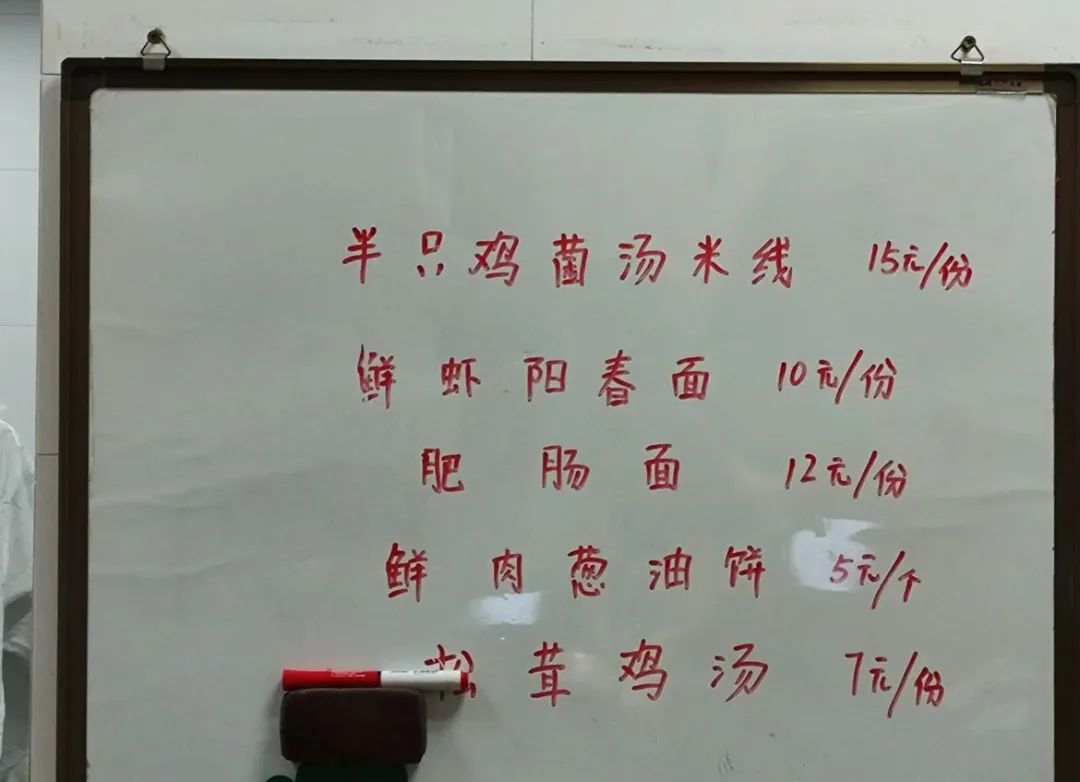 半只鸡菌汤米线 15元/份
鲜虾阳春面 10元/份
肥肠面 12元/份
鲜肉葱油饼 5元/个
松茸鸡汤 7元/份